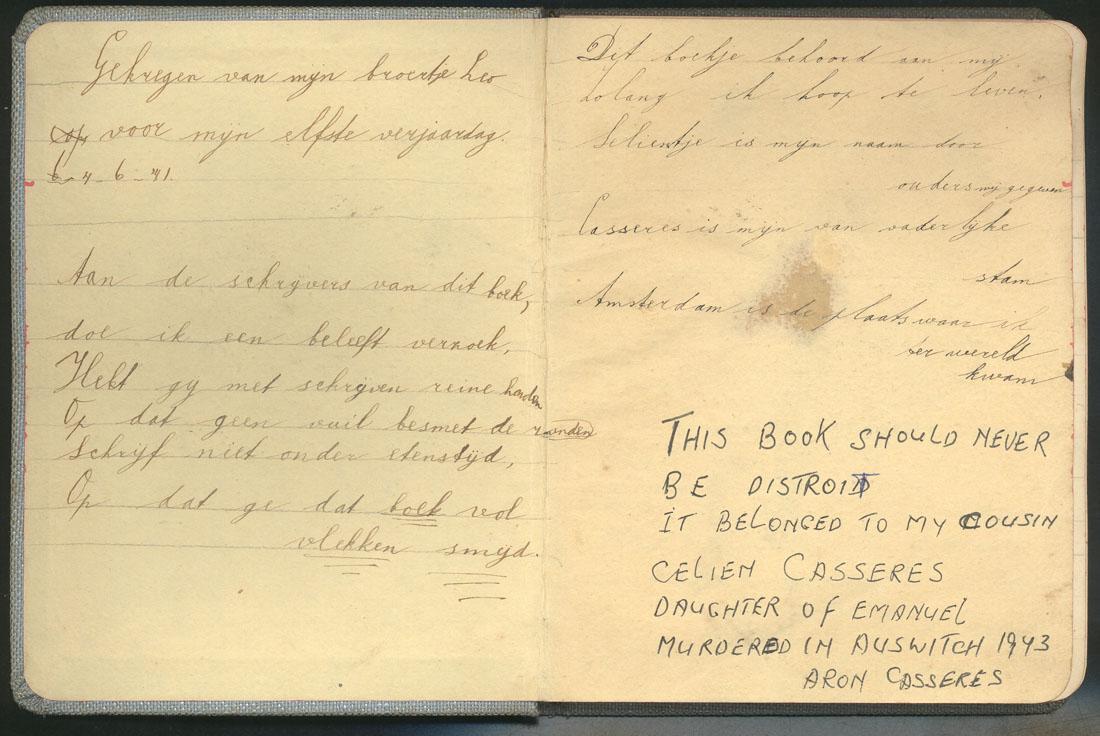 Gekregen van mijn broertje Leo
op voor mijn elfste verjaardag.
6-6-41.
Aan de schrijvers van dit boek,
doe ik een beleeft verzoek,
Hebt gij met schrijven reine handen
Op dat geen vuil besmet de randen
Schrijf niet onder etenstijd,
Op dat ge dat boek vol
vlekken smijd.
Dit boekje behoord aan mij
zolang ik hoop te leven.
Selientje is mijn naam door
ouders mij gegeven
Casseres is mijn van vaderlijke
stam
Amsterdam is de plaats waar ik
ter wereld
kwam
THIS BOOK SHOULD NEVER
BE DISTROIT
IT BELONGED TO MY COUSIN
CELIEN CASSERES
DAUGHTER OF EMANUEL
MURDERED IN AUSWITCH 1943
ARON CASSERES